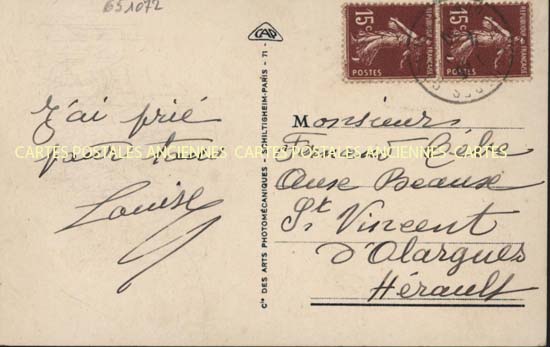 651072
CAP
15c
POSTES
RÉPUBLIQUE FRANÇAISE
15c
POSTES
J'ai prié
pour tous
Louise
CARTES POSTALES ANCIENNES CARTES POSTALES ANCIENNES CARTES
Cie DES ARTS PHOTOMÉCANIQUES - SCHILTIGHEIM-PARIS - 71 -
Monsieur
St Vincent
d'Olargues
Hérault